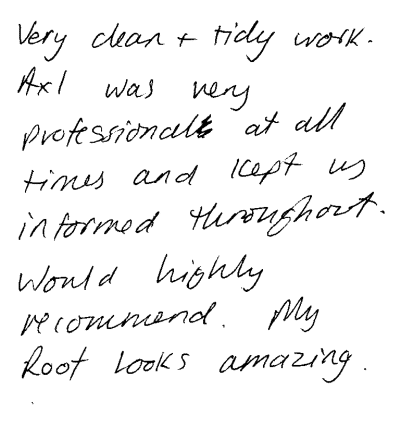 Very clean + tidy work.
Axl was very
professional at all
times and kept us
informed throughout.
Would highly
recommend. My
Roof looks amazing.